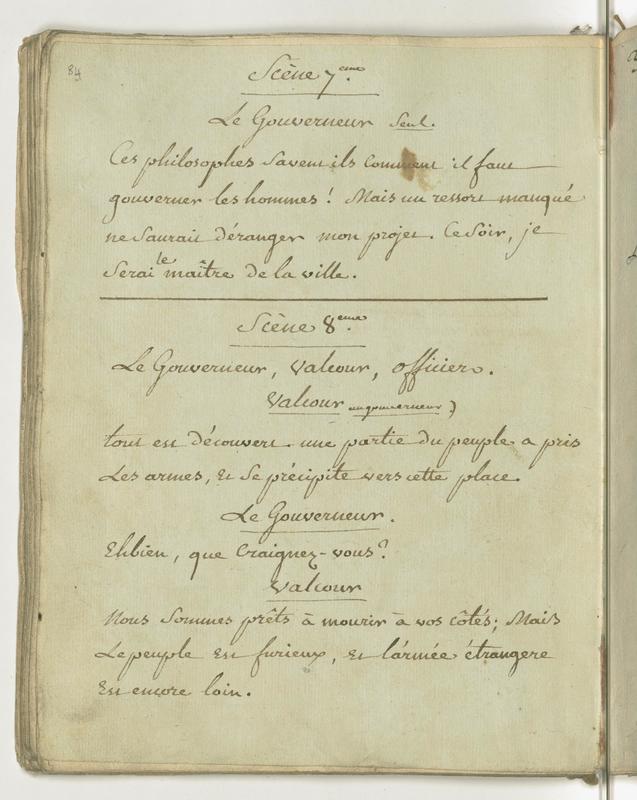 84
Scène 7eme.
Le Gouverneur seul.
Ces philosophes savent ils comment il faut
gouverner les hommes! Mais un ressort manqué
ne saurait déranger mon projet. Ce soir, je
serai le maître de la ville.
Scène 8eme.
Le Gouverneur, Valcour, officiers.
Valcour au gouverneur)
tout est découvert. une partie du peuple a pris
les armes, et se précipite vers cette place.
Le Gouverneur.
Ehbien, que craignez-vous?
Valcour
Nous sommes prêts à mourir à vos côtés; Mais
Le peuple est furieux, et l'armée étrangere
est encore loin.